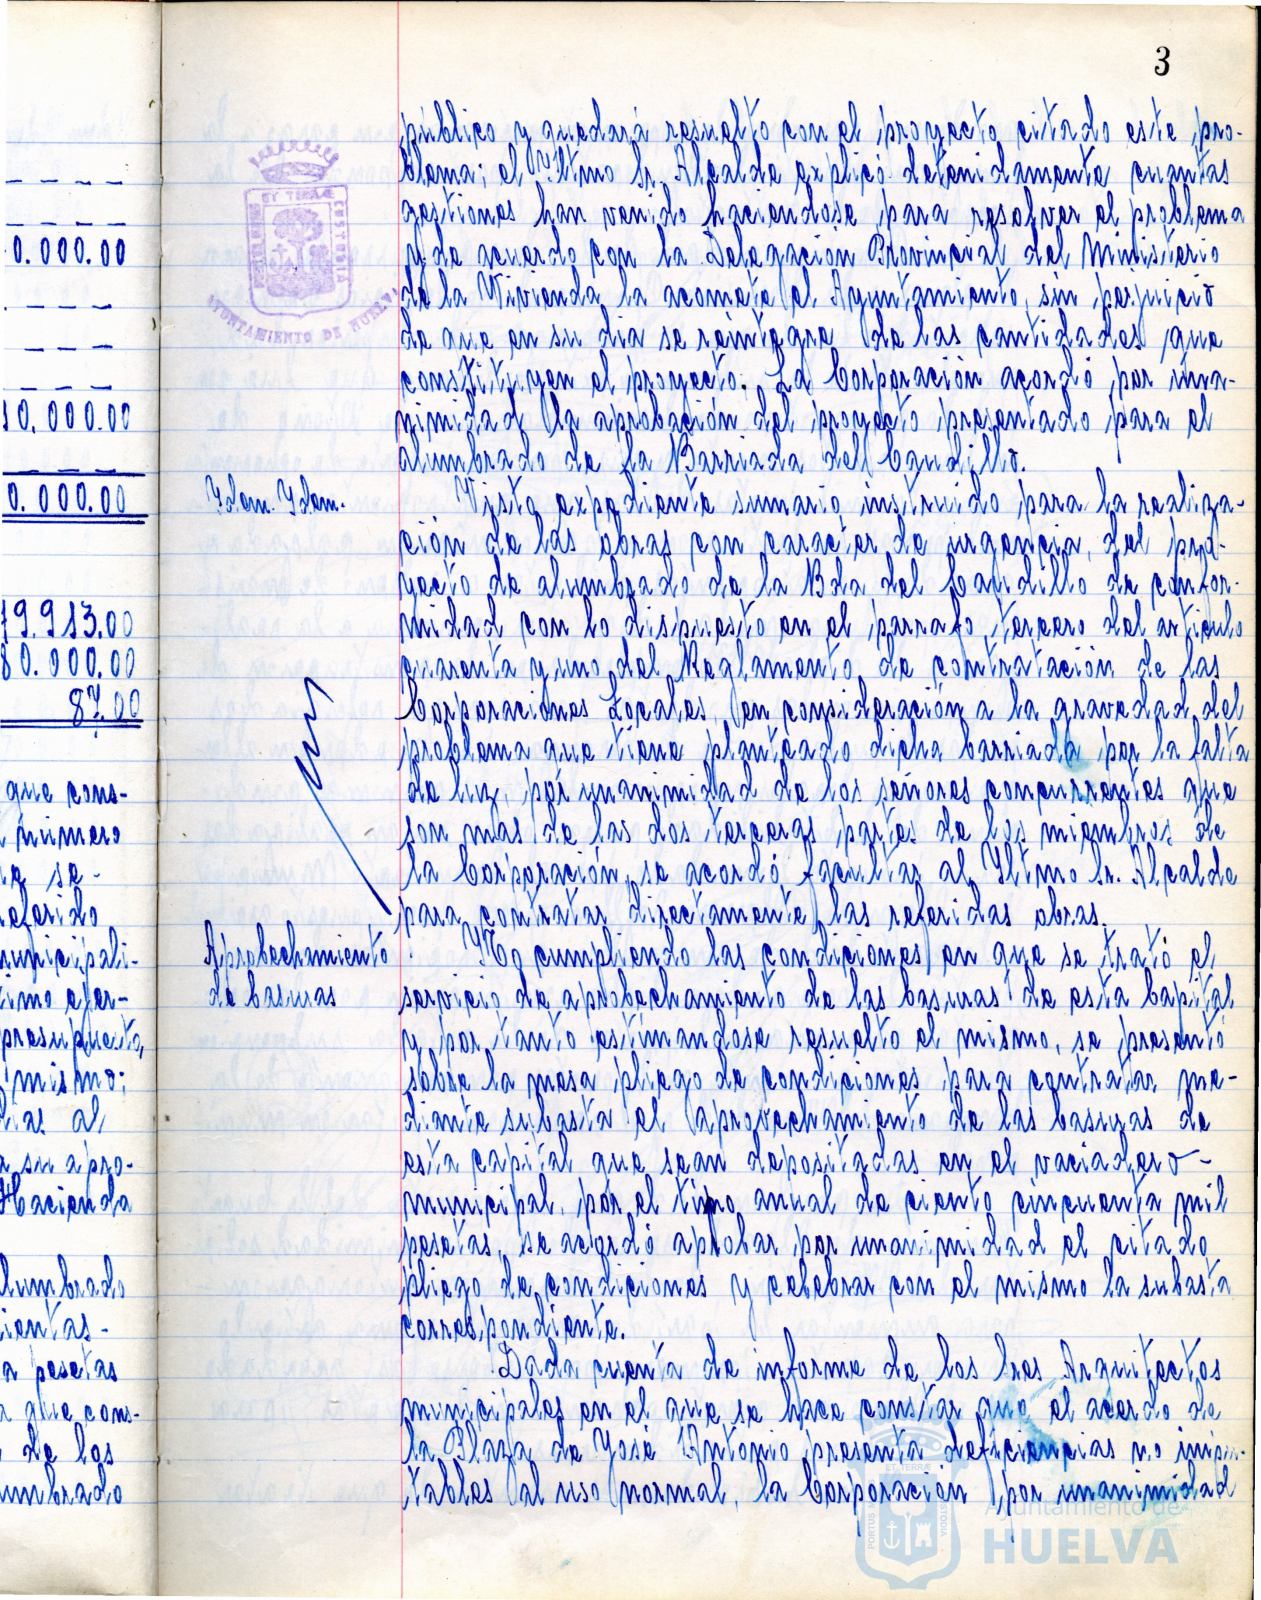 3
público y quedará resuelto con el proyecto citado este pro-
blema; el Yltmo Sr. Alcalde explicó detenidamente cuantas
gestiones han venido haciendose para resolver el problema
y de acuerdo con la Delegación Provincial del Ministerio
de la Vivienda la acomete el Ayuntamiento, sin perjuicio
de que en su dia se reintegre de las cantidades que
constituyen el proyecto. La Corporación acordó por una-
nimidad la aprobación del proyecto presentado para el
alumbrado de la Barriada del Caudillo.
Ydem. Ydem.
Visto expediente sumario instruido para la realiza-
ción de las obras con caracter de urgencia, del pro-
yecto de alumbrado de la Bda del Caudillo de confor-
midad con lo dispuesto en el parrafo tercero del articulo
cuarenta y uno del Reglamento de contratación de las
Corporaciones Locales, en consideración a la gravedad del
problema que tiene planteado dicha barriada por la falta
de luz, por unanimidad de los señores concurrentes que
son mas de las dos terceras partes de los miembros de
la Corporación, se acordó facultar al Yltmo Sr. Alcalde
para contratar directamente las referidas obras.
Aprobechamiento
de basuras
No cumpliendo las condiciones en que se trató el
servicio de aprobechamiento de las basuras de esta Capital
y por tanto estimandose resuelto el mismo, se presentó
sobre la mesa pliego de condiciones para contratar me-
diante subasta el aprovechamiento de las basuras de
esta capital que sean depositadas en el vaciadero -
municipal, por el tipo anual de ciento cincuenta mil
pesetas, se acordó aprobar por unanimidad el citado
pliego de condiciones y celebrar con el mismo la subasta
correspondiente.
Dada cuenta de informe de los Sres Arquitectos
municipales en el que se hace constar que el acerdo de
la Plaza de José Antonio presenta deficiencias no impu-
tables al uso normal, la Corporación por unanimidad
0.000.00
10.000.00
0.000.00
19.913.00
80.000.00
87.00
que cons-
número
se-
referido
municipali-
presupuesto,
mismo;
al
su apro-
Hacienda
alumbrado
pesetas
que cons-
de los
alumbrado
AYUNTAMIENTO DE HUELVA
Ayuntamiento de
HUELVA